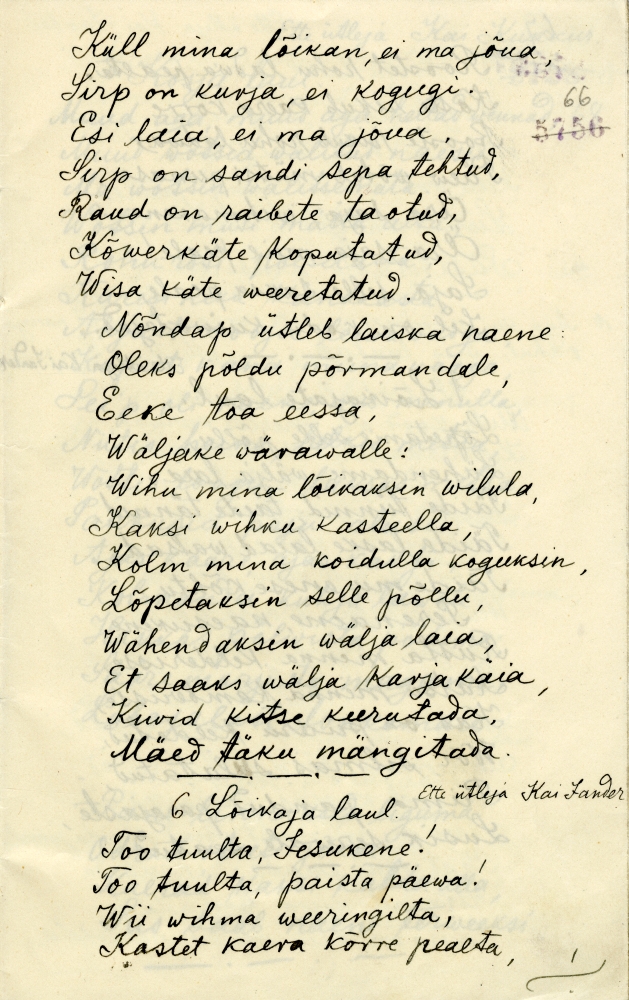 Küll mina lõikan, ei ma jõua,
Sirp on kurja, ei kogugi.
66
5756
Esi laia, ei ma jõua,
Sirp on sandi sepa tehtud,
Raud on raibete taotud,
Kõwerkäte koputatud,
Wisa käte weeretatud.
Nõndap ütleb laiska naene:
Oleks põldu põrmandale,
Eeke toa eessa,
Wäljake wärawalle:
Wihu mina lõikaksin wilula,
Kaksi wihku kasteella,
Kolm mina koidulla koguksin,
Lõpetaksin selle põllu,
Wähendaksin wälja laia,
Et saaks wälja karja käia,
Kiwid kitse keerutada,
Mäed täku mängitada.
Ette ütleja Kai Sander
6 Lõikaja laul.
Too tuulta, Jesukene!
Too tuulta, paista päewa!
Wii wihma weeringilta,
Kastet kaera kõrre pealta,